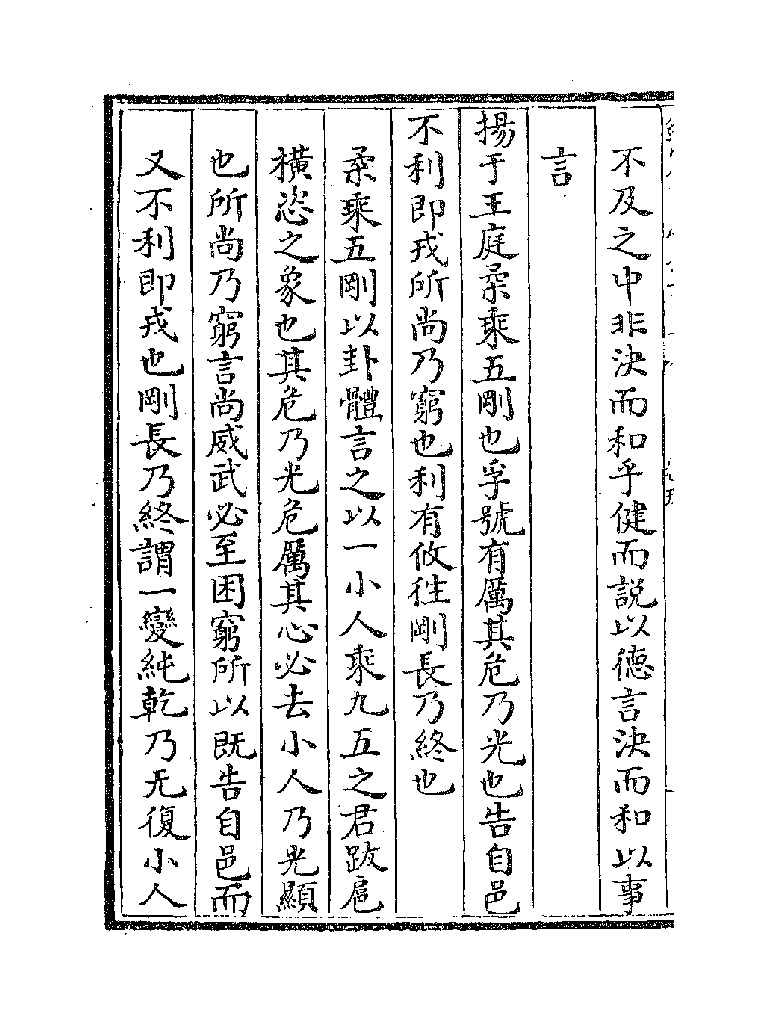 不及之中非決而和乎健而說以德言決而和以事
言
揚于王庭柔乘五剛也孚號有厲其危乃光也告自邑
不利即戎所尚乃窮也利有攸往剛長乃終也
柔乘五剛以卦體言之以一小人乘九五之君跋扈
橫恣之象也其危乃光危厲其心必去小人乃光顯
也所尚乃窮言尚威武必至困窮所以既告自邑而
又不利即戎也剛長乃終謂一變純乾乃无復小人